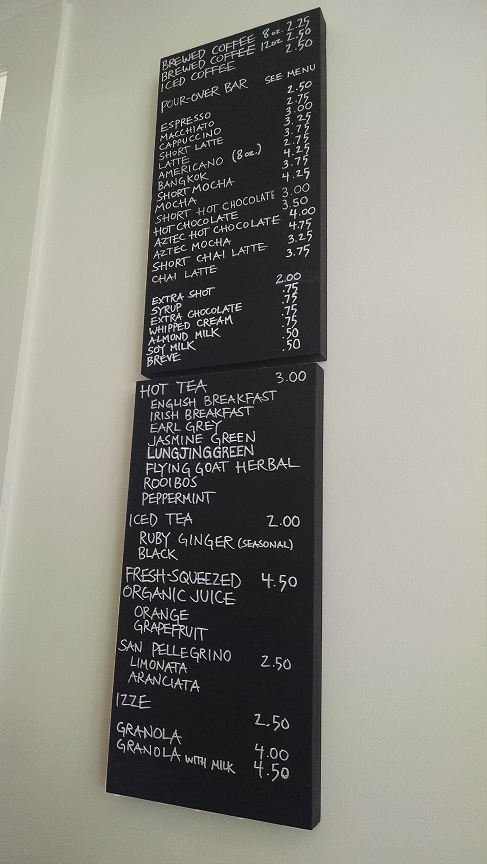 BREWED COFFEE 8 oz. 2.25
BREWED COFFEE 12 oz 2.50
ICED COFFEE 2.50
POUR-OVER BAR SEE MENU
ESPRESSO 2.50
MACCHIATO 2.75
CAPPUCCINO 3.00
SHORT LATTE 3.25
LATTE 3.75
AMERICANO (8 oz.) 2.75
BANGKOK 4.25
SHORT MOCHA 3.75
MOCHA 4.25
SHORT HOT CHOCOLATE 3.00
HOT CHOCOLATE 3.50
AZTEC HOT CHOCOLATE 4.00
AZTEC MOCHA 4.75
SHORT CHAI LATTE 3.25
CHAI LATTE 3.75
EXTRA SHOT 2.00
SYRUP .75
EXTRA CHOCOLATE .75
WHIPPED CREAM .75
ALMOND MILK .75
SOY MILK .50
BREVE .50
HOT TEA 3.00
ENGLISH BREAKFAST
IRISH BREAKFAST
EARL GREY
JASMINE GREEN
LUNGJING GREEN
FLYING GOAT HERBAL
ROOIBOS
PEPPERMINT
ICED TEA 2.00
RUBY GINGER (SEASONAL)
BLACK
FRESH-SQUEEZED 4.50
ORGANIC JUICE
ORANGE
GRAPEFRUIT
SAN PELLEGRINO 2.50
LIMONATA
ARANCIATA
IZZE 2.50
GRANOLA 4.00
GRANOLA WITH MILK 4.50